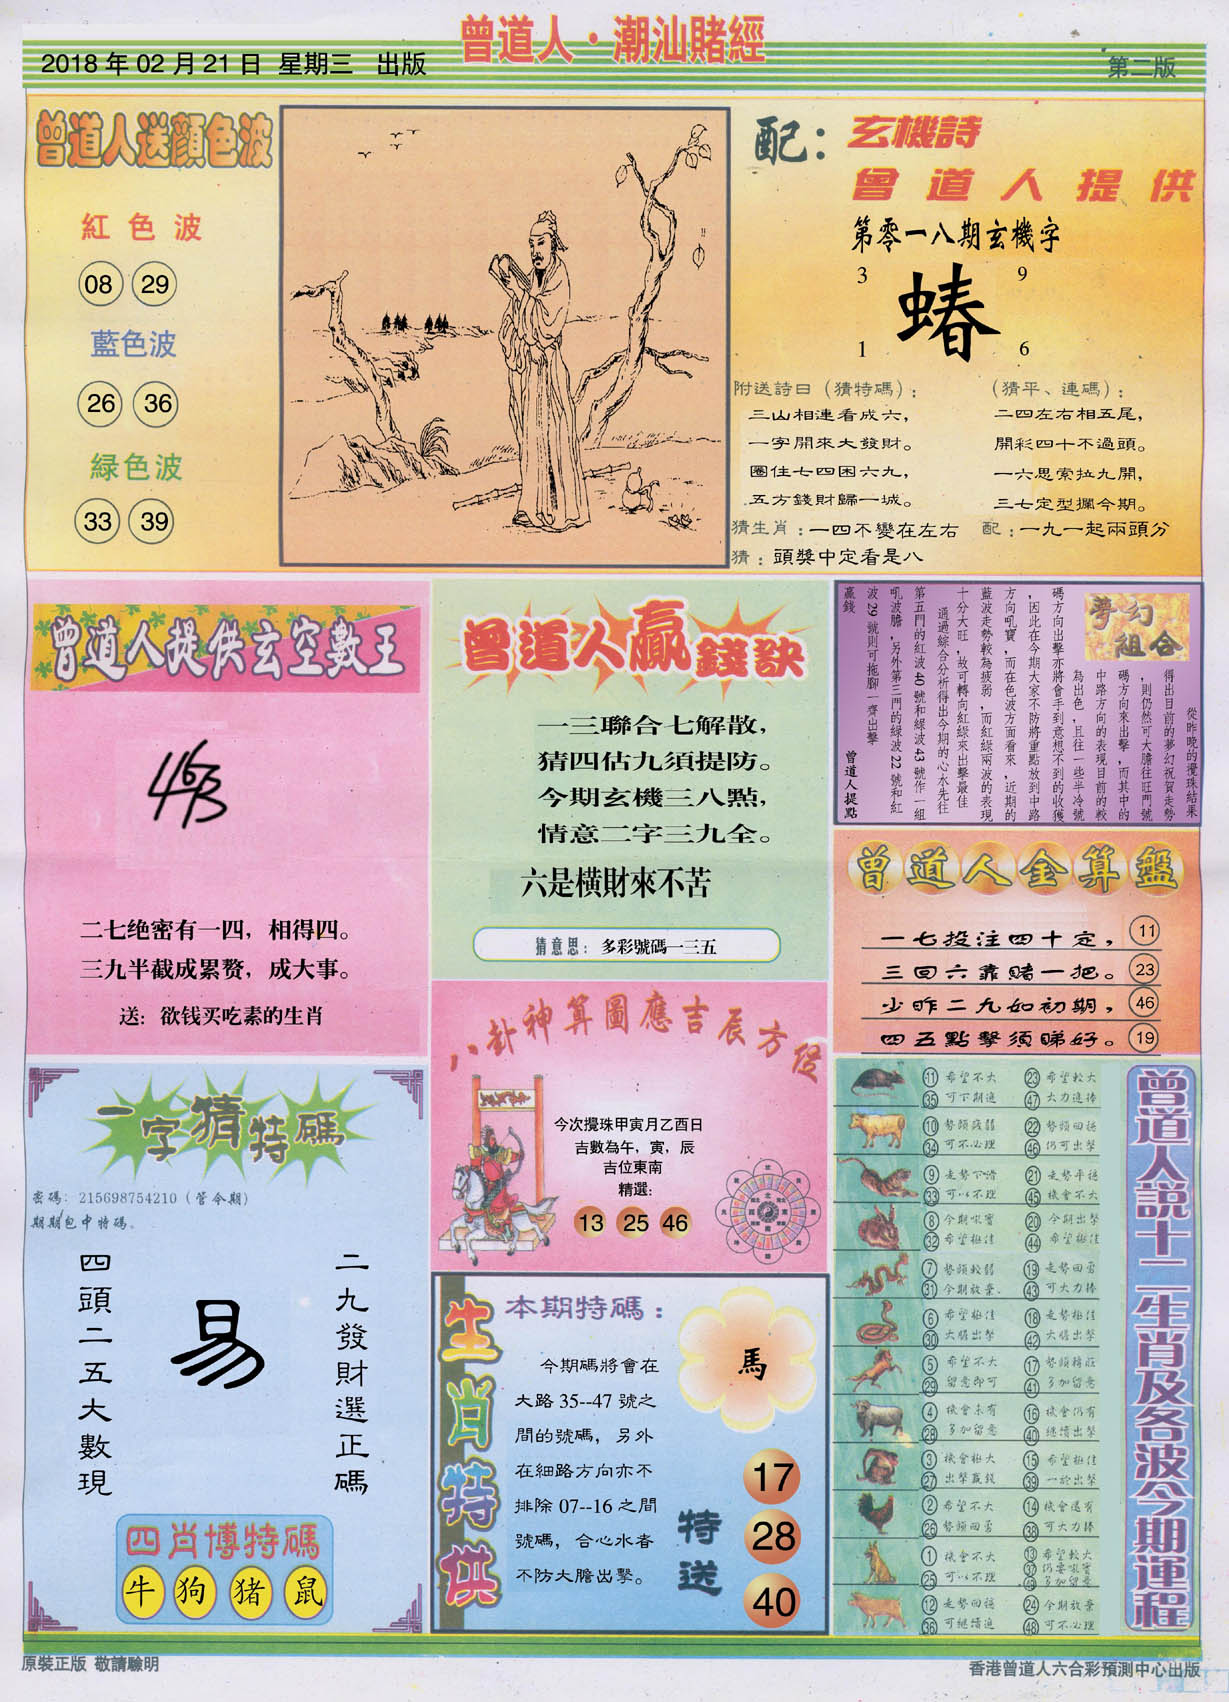 曾道人·潮汕賭經
2018年02月21日 星期三 出版
第二版
曾道人送顏色波
紅色波
08 29
藍色波
26 36
緑色波
33 39
配：玄機詩
曾道人提供
第零一八期玄機字
3 9
蝽
1 6
附送詩曰（猜特碼）：
三山相連看成六，
一字開來大發財。
圈住七四困六九，
五方錢財歸一城。
（猜平、連碼）：
二四左右相五尾，
開彩四十不過頭。
一六思索拉九開，
三七定型攔今期。
猜生肖：一四不變在左右
配：一九一起兩頭分
猜：頭獎中定看是八
曾道人提供玄空數王
463
二七绝密有一四，相得四。
三九半截成累赘，成大事。
送：欲钱买吃素的生肖
曾道人贏錢訣
一三聯合七解散，
猜四估九須提防。
今期玄機三八點，
情意二字三九全。
六是橫財來不苦
猜意思：多彩號碼一三五
夢幻組合
從昨晚的攪珠結果
得出目前的夢幻祝賀走勢
，則仍然可大膽往旺門號
碼方向來出擊，而其中的
中路方向的表現目前的較
為出色，且往一些半冷號
碼方向出擊亦將會手到意想不到的收獲
，因此在今期大家不防將重點放到中路
方向吼寶，而在色波方面看來，近期的
藍波走勢較為疲弱，而紅綠兩波的表現
十分大旺，故可轉向紅綠來出擊最佳
通過綜合分析得出今期的心水先往
第五門的紅波40號和緑波43號作一組
吼波膽，另外第三門的綠波22號和紅
波29號則可拖腳一齊出擊
贏錢
曾道人提點
曾道人金算盤
一七投注四十定， 11
三回六靠賭一把。 23
少昨二九如初期， 46
四五點擊須睇好。 19
八卦神算圖應吉辰方位
今次攪珠甲寅月乙酉日
吉數為午，寅，辰
吉位東南
精選：
13 25 46
一字猜特碼
密碼：215698754210（管令期）
期期包中特碼。
二九發財選正碼
易
四頭二五大數現
四肖博特碼
牛 狗 猪 鼠
生肖特供
本期特碼：
馬
今期碼將會在
大路35--47號之
間的號碼，另外
在細路方向亦不
排除07--16之間
號碼，合心水者
不防大膽出擊。
特送
17
28
40
曾道人説十二生肖及各波今期運程
11 希望不大 23 希望較大
35 可下期進 47 大力進捧
10 勢頭疲弱 22 勢頭回穩
34 可不必理 46 仍可出擊
9 走勢下滑 21 走勢平穩
33 可以不理 45 機會不大
8 今期吼寶 20 今期出擊
32 希望極佳 44 希望極佳
7 勢頭較弱 19 走勢回勇
31 今期放棄 43 可大力捧
6 希望極佳 18 走勢極佳
30 大膽出擊 42 大膽出擊
5 希望不大 17 勢頭轉旺
29 留意即可 41 多加留意
4 機會未有 16 機會仍有
28 多加留意 40 繼續出擊
3 機會極大 15 希望極佳
27 出擊贏錢 39 一於出擊
2 希望不大 14 機會還有
26 勢頭回勇 38 可大力捧
1 機會不大 13 希望較大
37 仍要吼寶
25 可以不理 49 多加留意
12 走勢回穩 24 今期放棄
36 可繼續進 48 可不必理
原裝正版 敬請驗明
香港曾道人六合彩預測中心出版